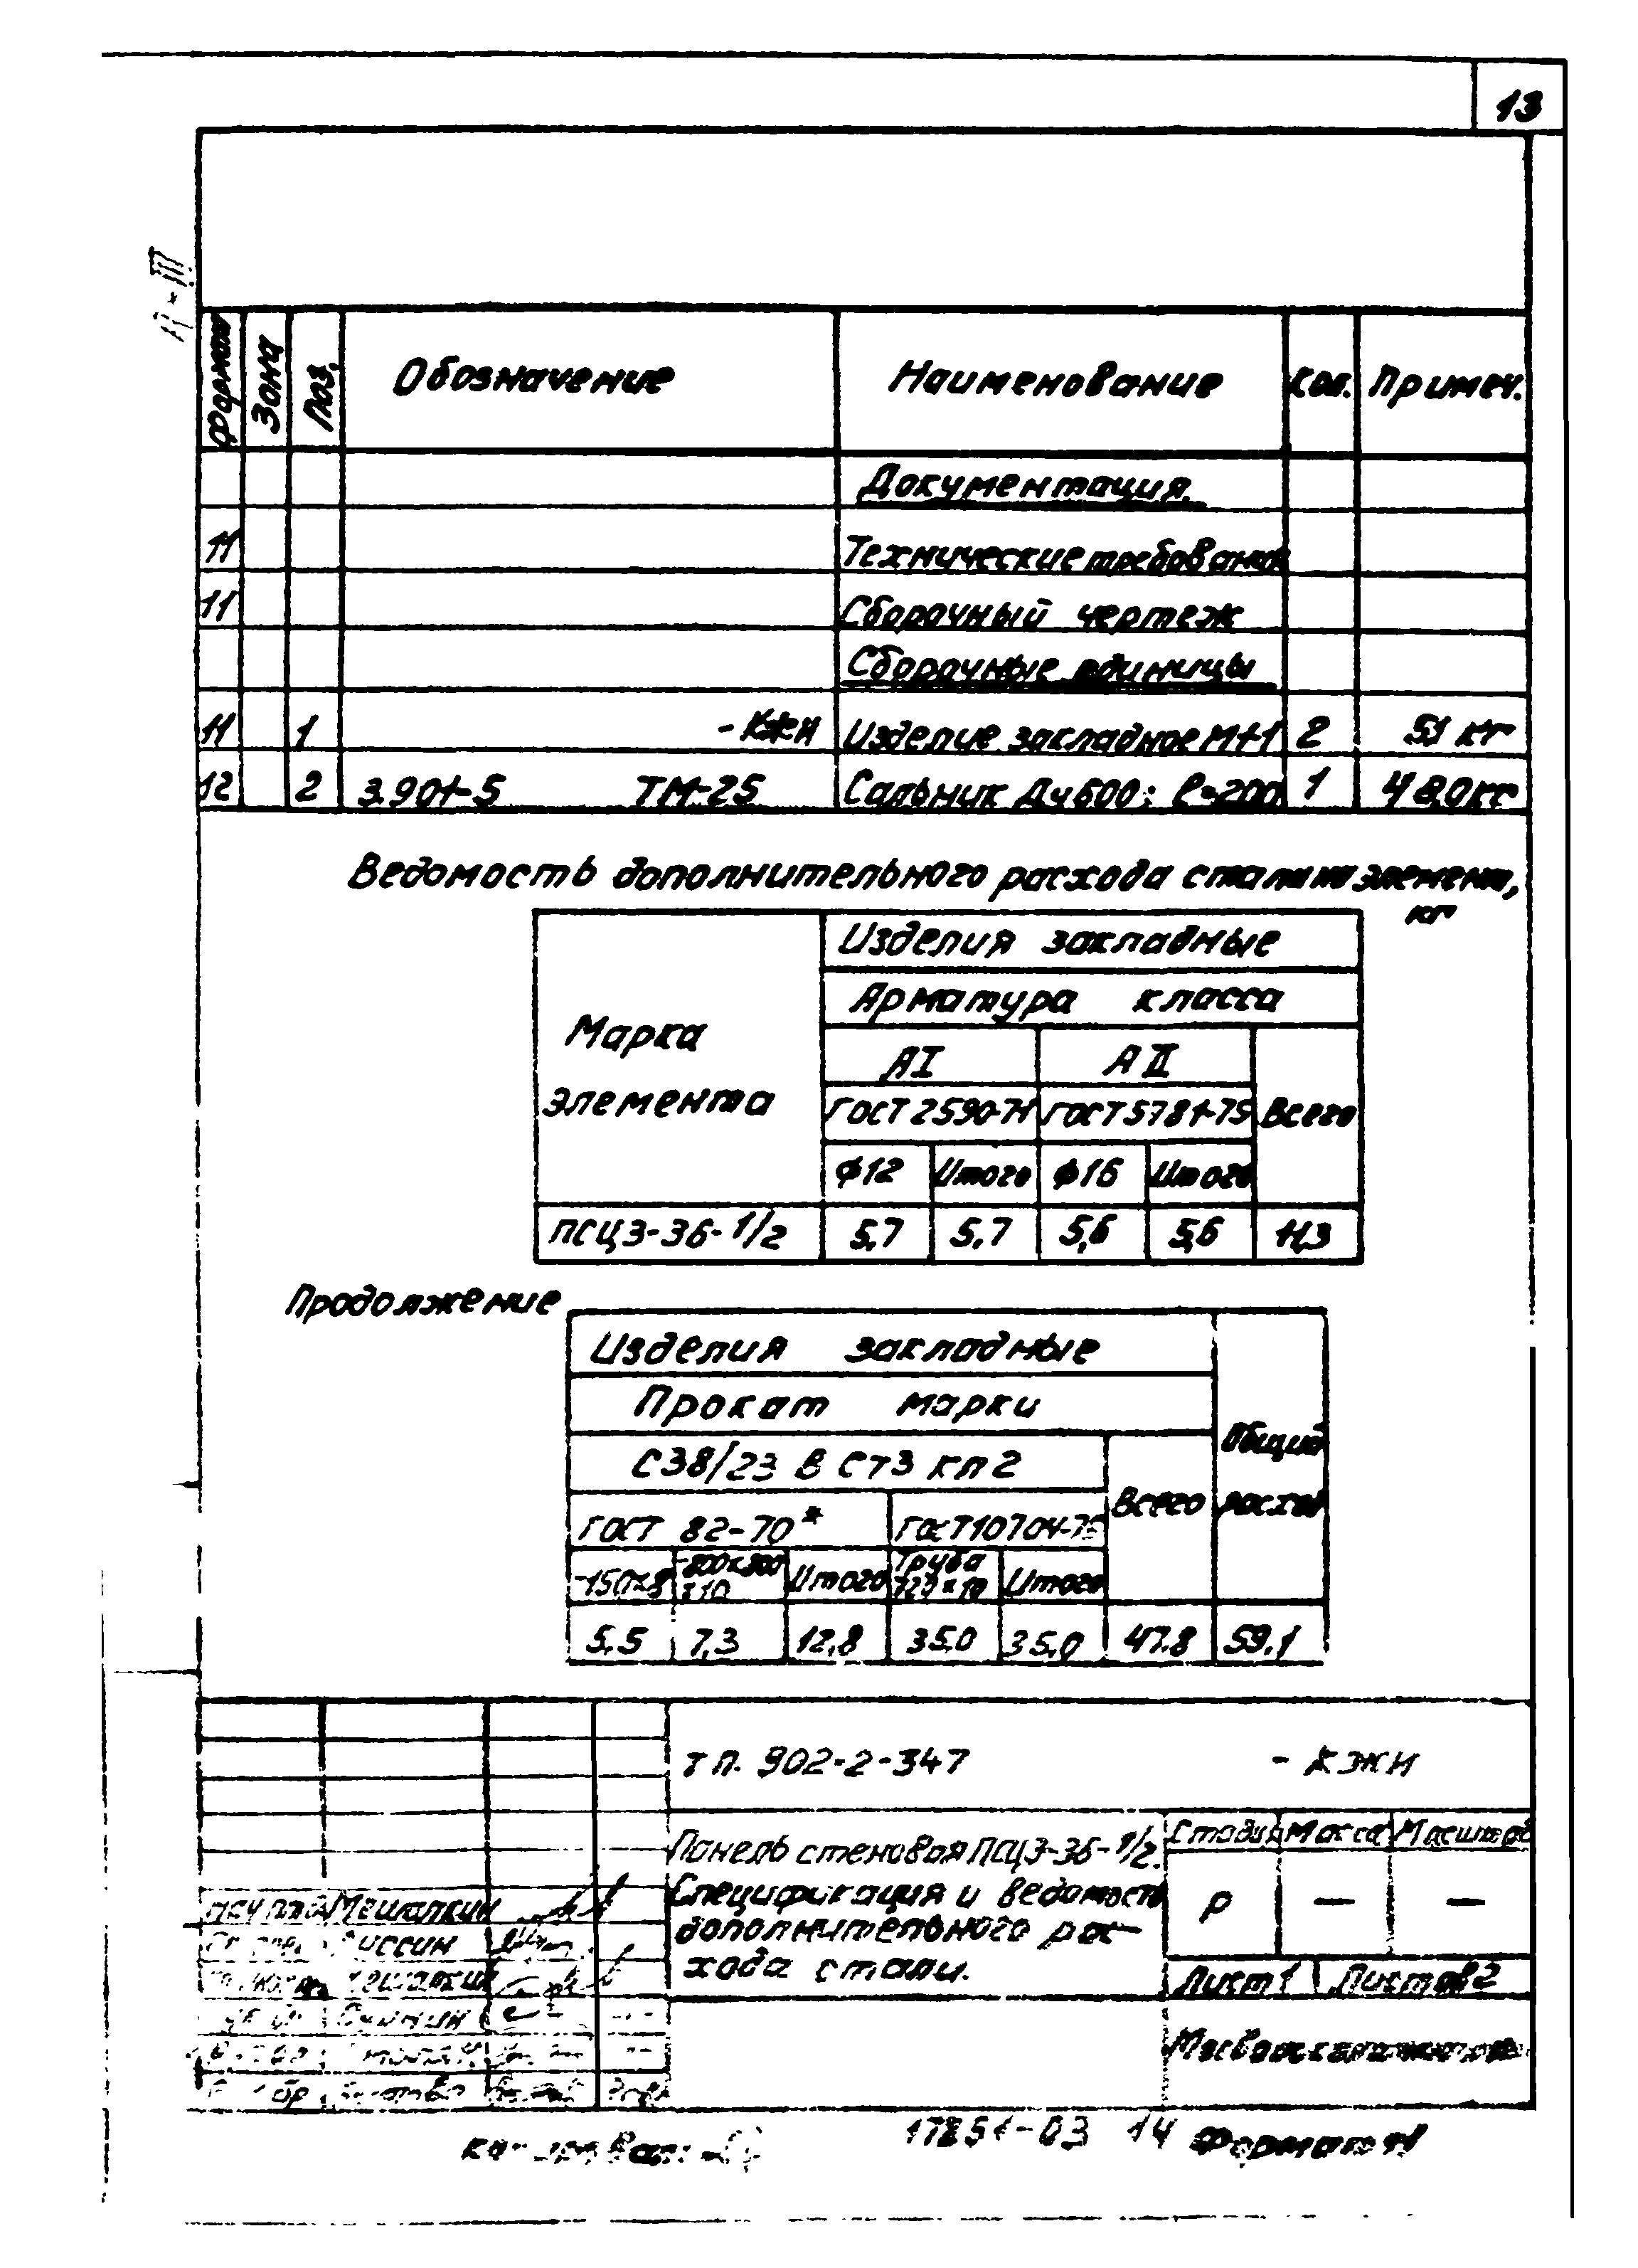 13
А-III
Формат Зона Поз. Обозначение Наименование Кол. Примеч.
Документация
11 Технические требования
11 Сборочный чертеж
Сборочные единицы
11 1 -КЖИ Изделие закладное МН1 2 5,1 кг
12 2 3.901-5 ТМ-25 Сальник Ду600; l=200 1 48,0кг
Ведомость дополнительного расхода стали на элемент,
кг
Марка элемента
Изделия закладные
Арматура класса
АI АII Всего
ГОСТ 2590-71 ГОСТ 5781-75
ф12 Итого ф16 Итого
ПСЦ3-36-1/2 5,7 5,7 5,6 5,6 11,3
Продолжение
Изделия закладные
Общий расход
Прокат марки
С38/23 В Ст3 кп2
Всего
ГОСТ 82-70* ГОСТ10704-76
-150×8 -800×800 ×10 Итого Труба 720×10 Итого
5,5 7,3 12,8 35,0 35,0 47.8 59,1
т п. 902-2-347 - КЖИ
Панель стеновая ПСЦ3-36-1/2.
Спецификация и ведомость
дополнительного рас-
хода стали.
Стадия Масса Масштаб
Р — —
Лист 1 Листов 2
Мешалкин
17851-03 14 Формат 11